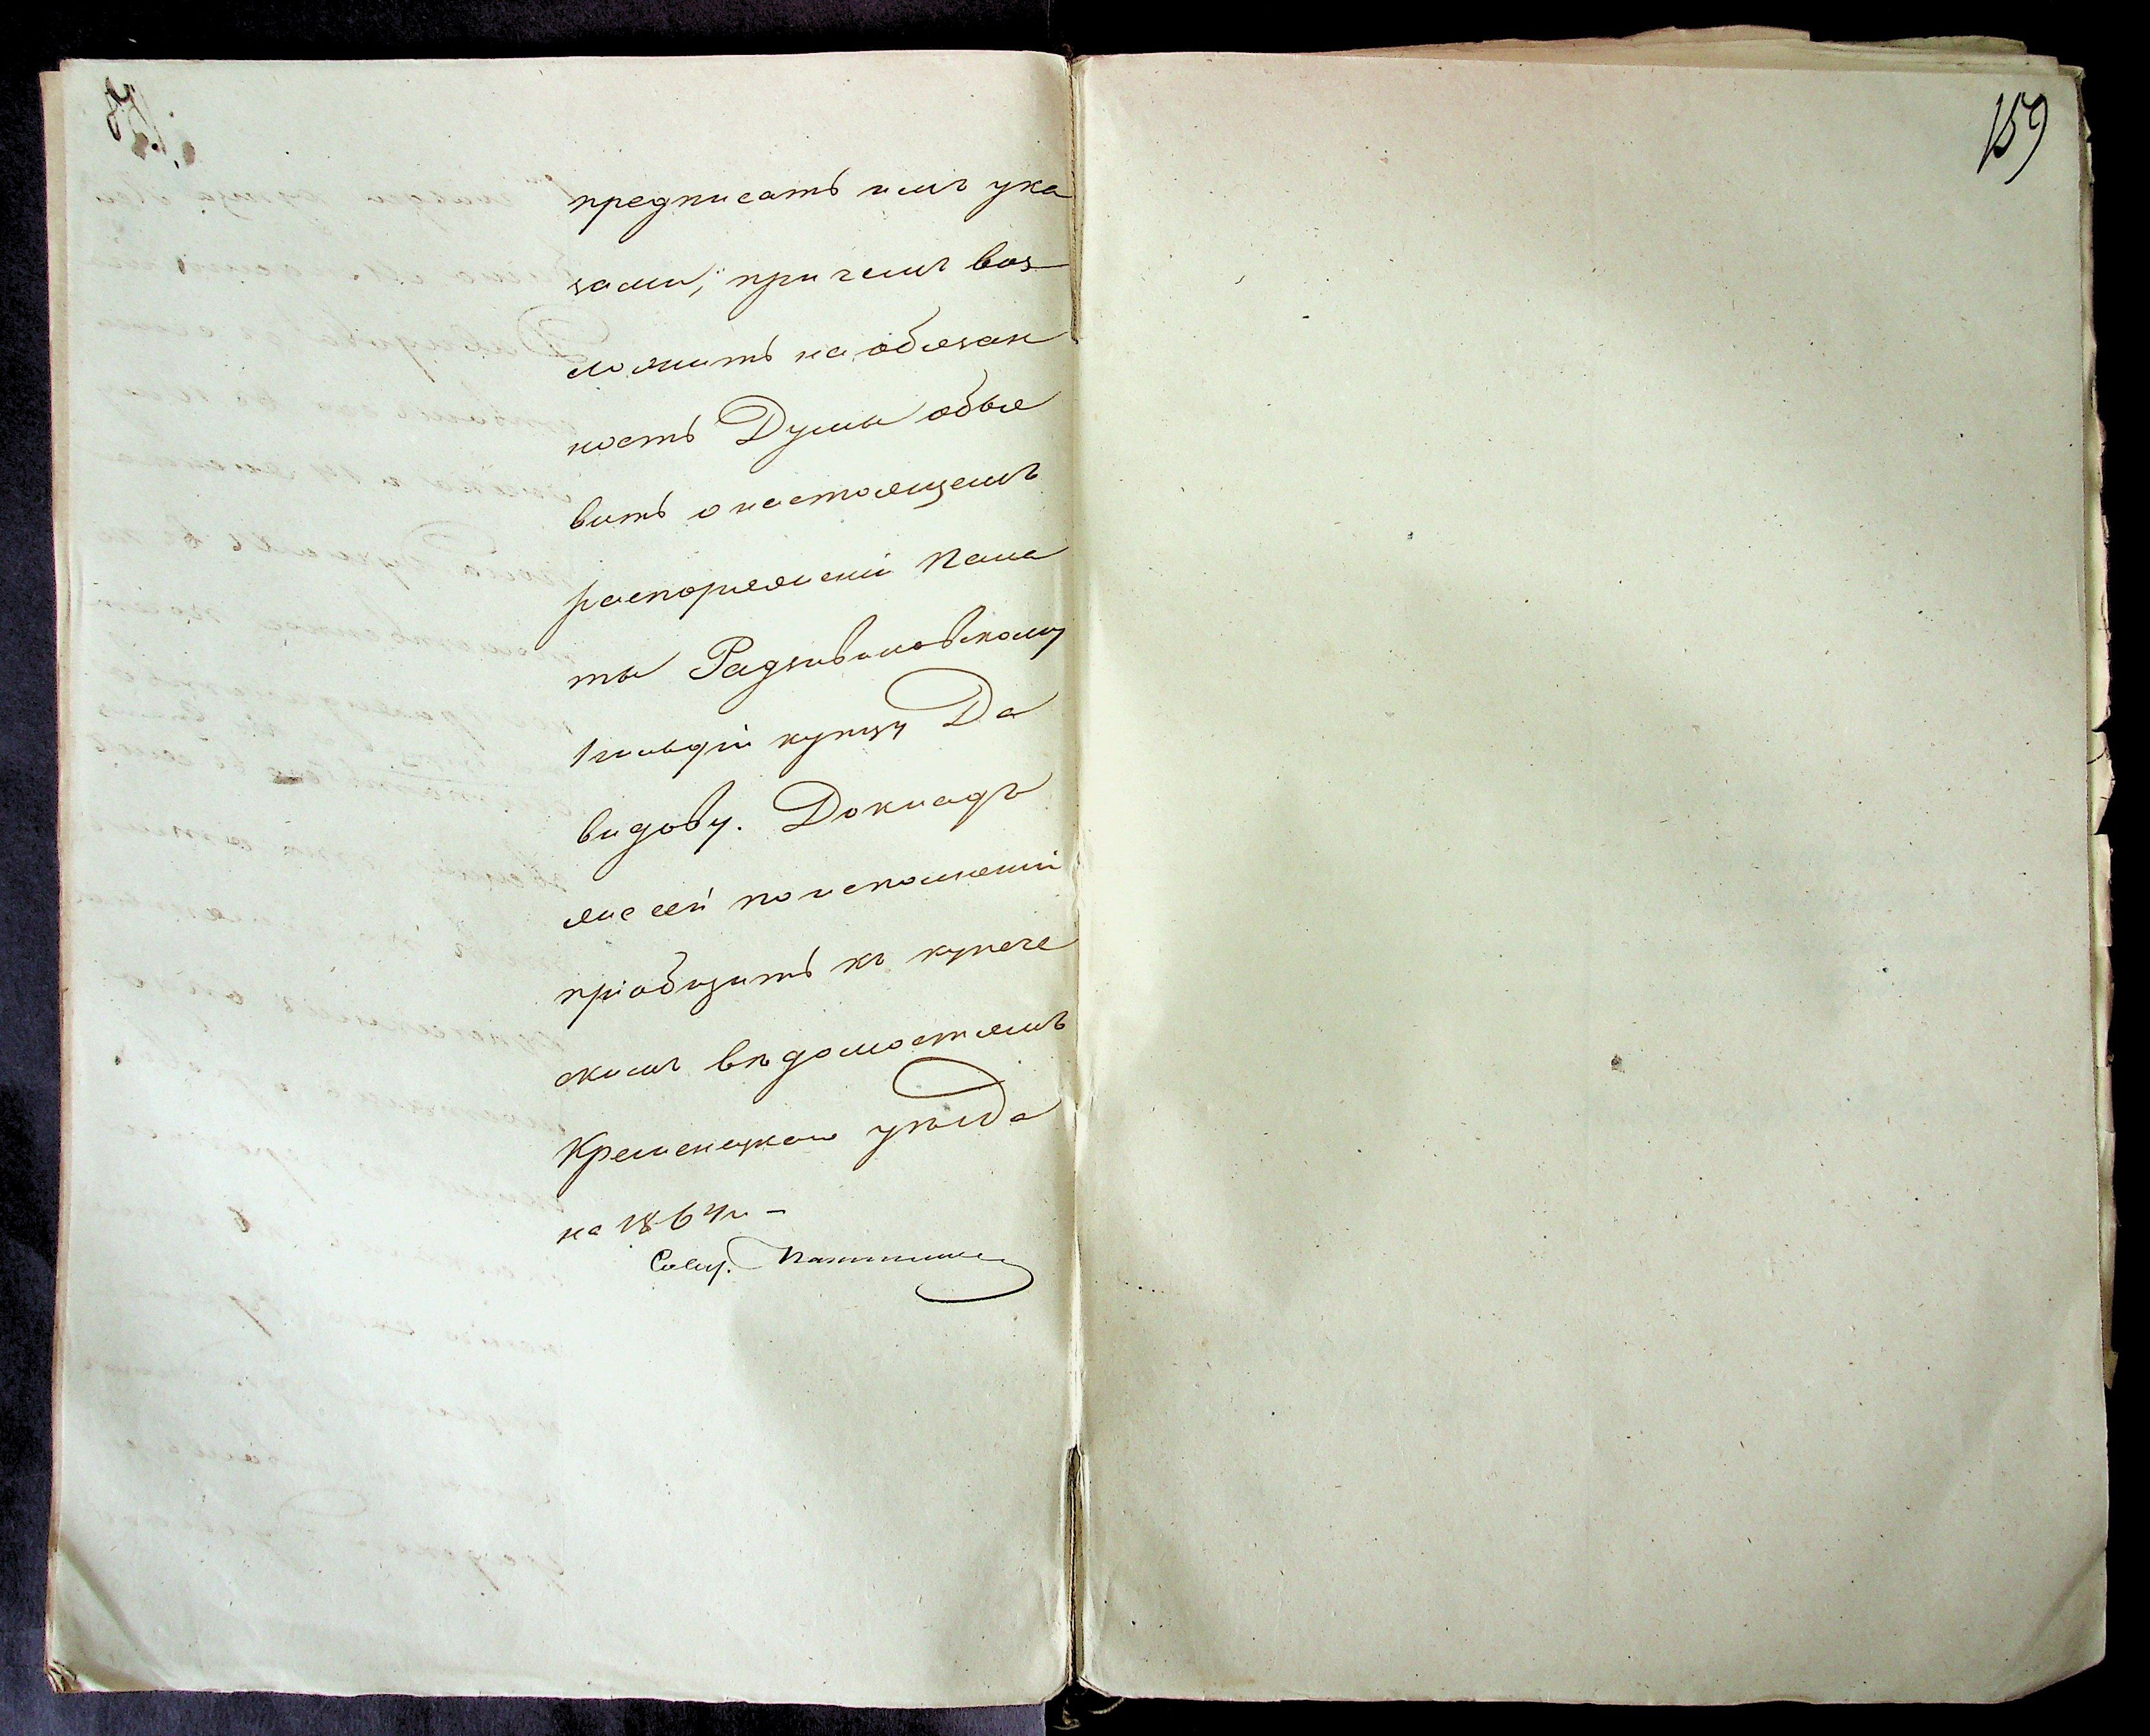 159
предписать имъ ука
зами; при чемъ воз
ложить на обязан
ность Думы объя
вить о настоящемъ
распоряженіи Пала
ты Радзивиловскому
1 гильдіи купцу Да
видову. Докладъ
же сей по исполненіи
пріобщить къ купече
скимъ вѣдомостямъ
Кременецкаго уѣзда
на 1864 г. –
Совѣт.